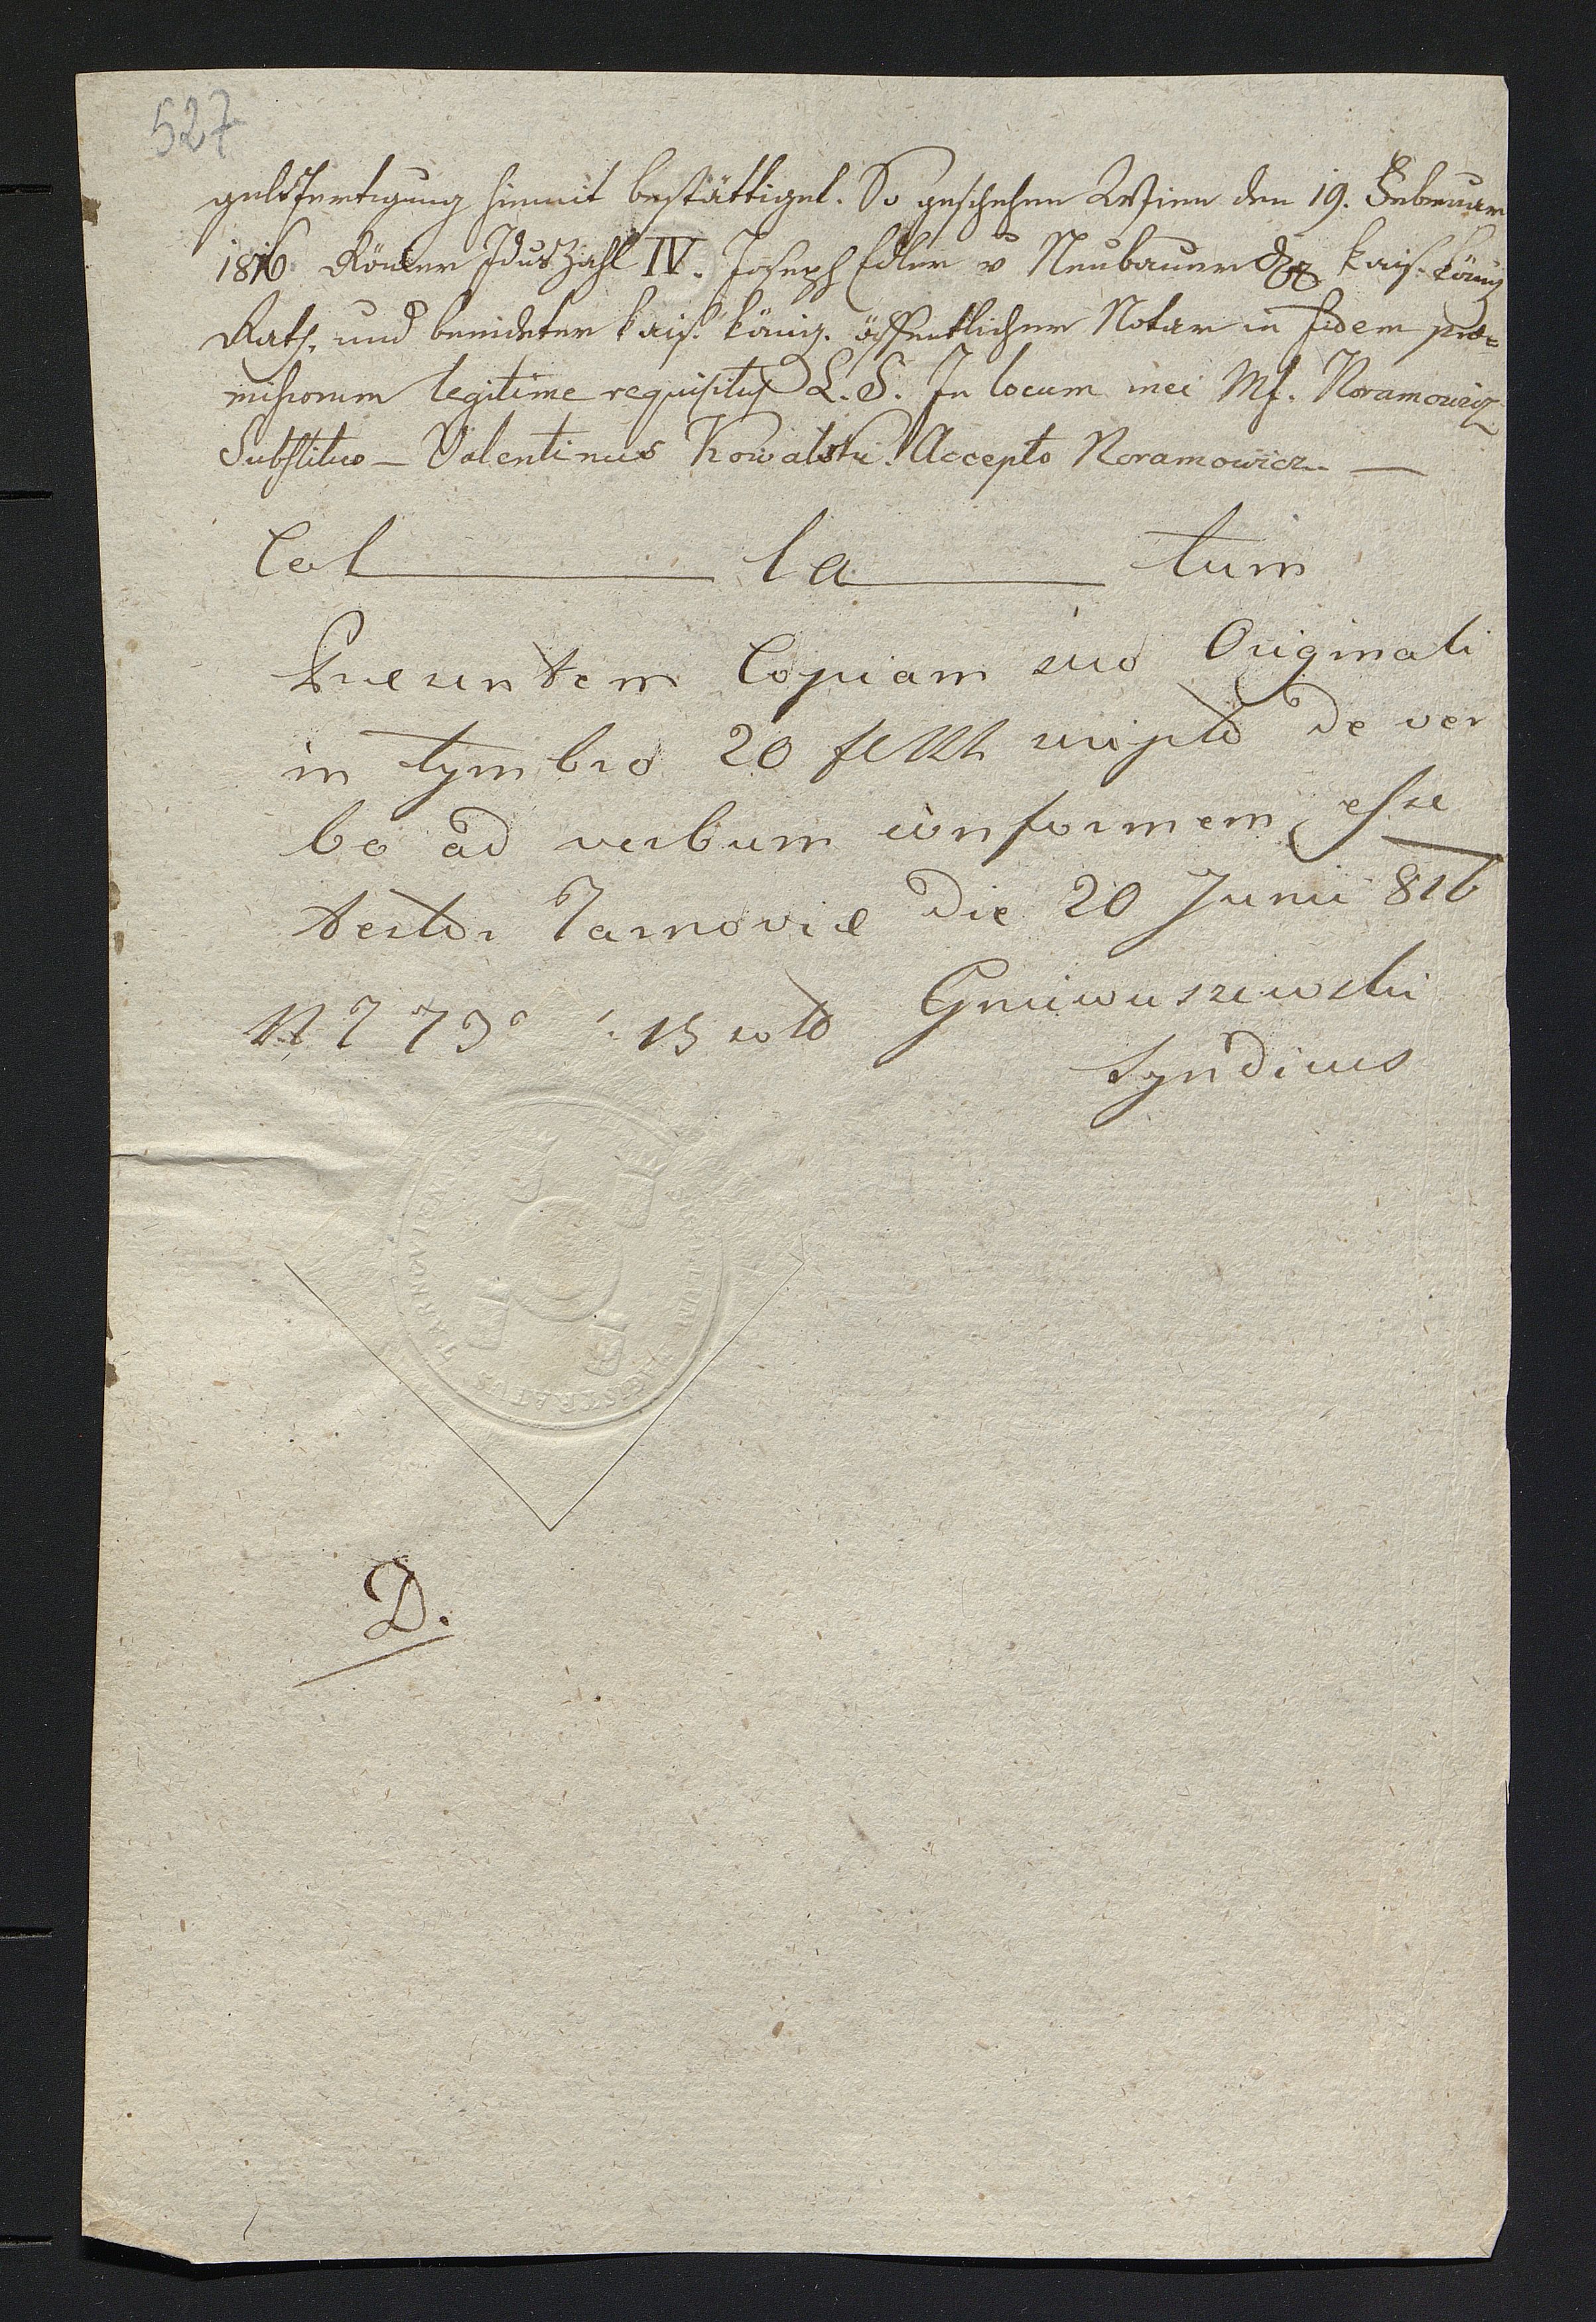 527
geldsfertigung hiemit bestättiget. So geschehen Wien den 19. Februar
1816 Römer Iduszahl IV. Joseph Edler v Neubauer kais. könig
Rath, und beeideter kais. könig. öffentlicher Notar in fidem præ=
missorum legitime requisitus L.S. In locum mei Mf. Noramowicz
Substituo — Valentinus Kowalski. Accepto Noramowicz —
Col — la — tum
Presentem Copiam suo Originali
in tymbro 20 scripto de ver
bo ad verbum conformem esse
testor Tarnoviæ die 20 Junii 816
Gniewoszewski
Syndicus
MAGISTRATUS
D.